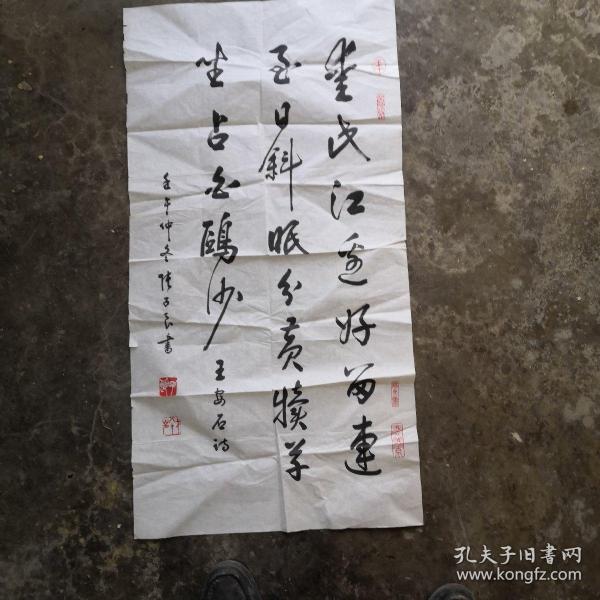 爱此江边好留连
至日斜眠分黄犊草
坐占白鸥沙
王安石诗
壬午仲冬陆子良书
孔夫子旧书网
www.kongfz.com